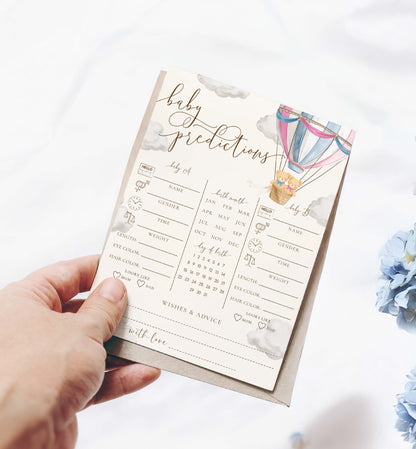 baby
predictions
baby A
NAME
GENDER
TIME
WEIGHT
LENGTH
EYE COLOR
HAIR COLOR
LOOKS LIKE
MOM DAD
birth month
JAN FEB MAR
APR MAY JUN
JUL AUG SEP
OCT NOV DEC
day of birth
1 2 3 4 5
6 7 8 9 10
11 12 13 14 15
16 17 18 19 20
baby B
NAME
GENDER
TIME
WEIGHT
LENGTH
EYE COLOR
HAIR COLOR
LOOKS LIKE
MOM DAD
WISHES & ADVICE
with love